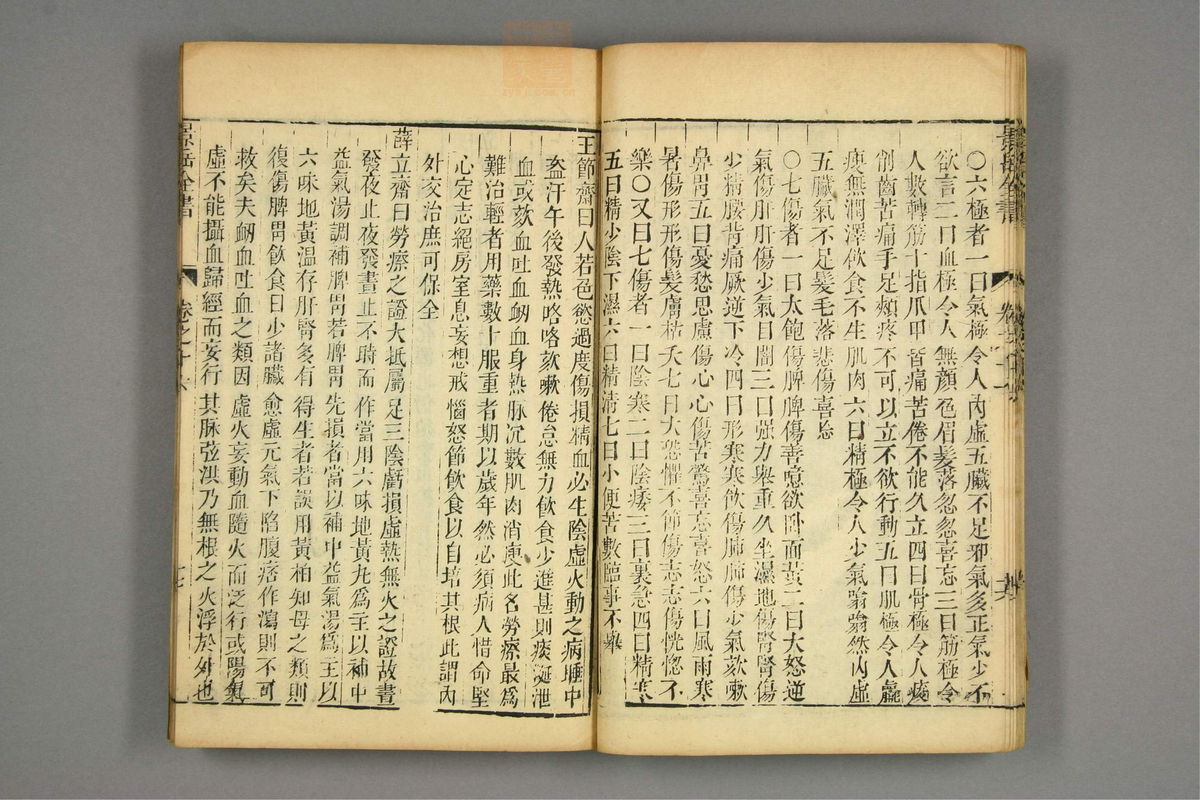 景岳全書
○六極者一曰氣極令人內虛五臟不足邪氣多正氣少不
欲言二曰血極令人無顏色眉髮落忽忽喜忘三曰筋極令
人數轉筋十指爪甲皆痛苦倦不能久立四曰骨極令人痠
削齒苦痛手足煩疼不可以立不欲行動五曰肌極令人羸
瘦無潤澤飲食不生肌肉六曰精極令人少氣翕翕然內虛
五臟氣不足髮毛落悲傷喜忘
○七傷者一曰太飽傷脾脾傷善噫欲臥面黃二曰大怒逆
氣傷肝肝傷少氣目闇三曰强力舉重久坐濕地傷腎腎傷
少精腰背痛厥逆下冷四曰形寒寒飲傷肺肺傷少氣欬嗽
鼻胷五曰憂愁思慮傷心心傷苦驚喜忘善怒六曰風雨寒
暑傷形形傷髮膚枯夭七曰大恐懼不節傷志志傷恍惚不
樂○又曰七傷者一曰陰寒二曰陰痿三曰裏急四曰精寒
五曰精少陰下濕六曰精清七曰小便苦數臨事不舉
王節齋曰人若色慾過度傷損精血必生陰虛火動之病睡中
盜汗午後發熱咯咯欬嗽倦怠無力飲食少進甚則痰涎泄
血或欬血吐血衂血身熱脉沉數肌肉消瘦此名勞瘵最爲
難治輕者用藥數十服重者期以歲年然必須病人惜命堅
心定志絕房室息妄想戒惱怒節飲食以自培其根此謂內
外交治庶可保全
薛立齋曰勞瘵之證大抵屬足三陰虧損虛熱無火之證故晝
發夜止夜發晝止不時而作當用六味地黃丸爲主以補中
益氣湯調補脾胃若脾胃先損者當以補中益氣湯爲主以
六味地黃溫存肝腎多有得生者若誤用黃柏知母之類則
復傷脾胃飲食日少諸臟愈虛元氣下陷腹痞作瀉則不可
救矣夫衂血吐血之類因虛火妄動血隨火而泛行或陽氣
虛不能攝血歸經而妄行其脉弦洪乃無根之火浮於外也
景岳全書
卷之十六